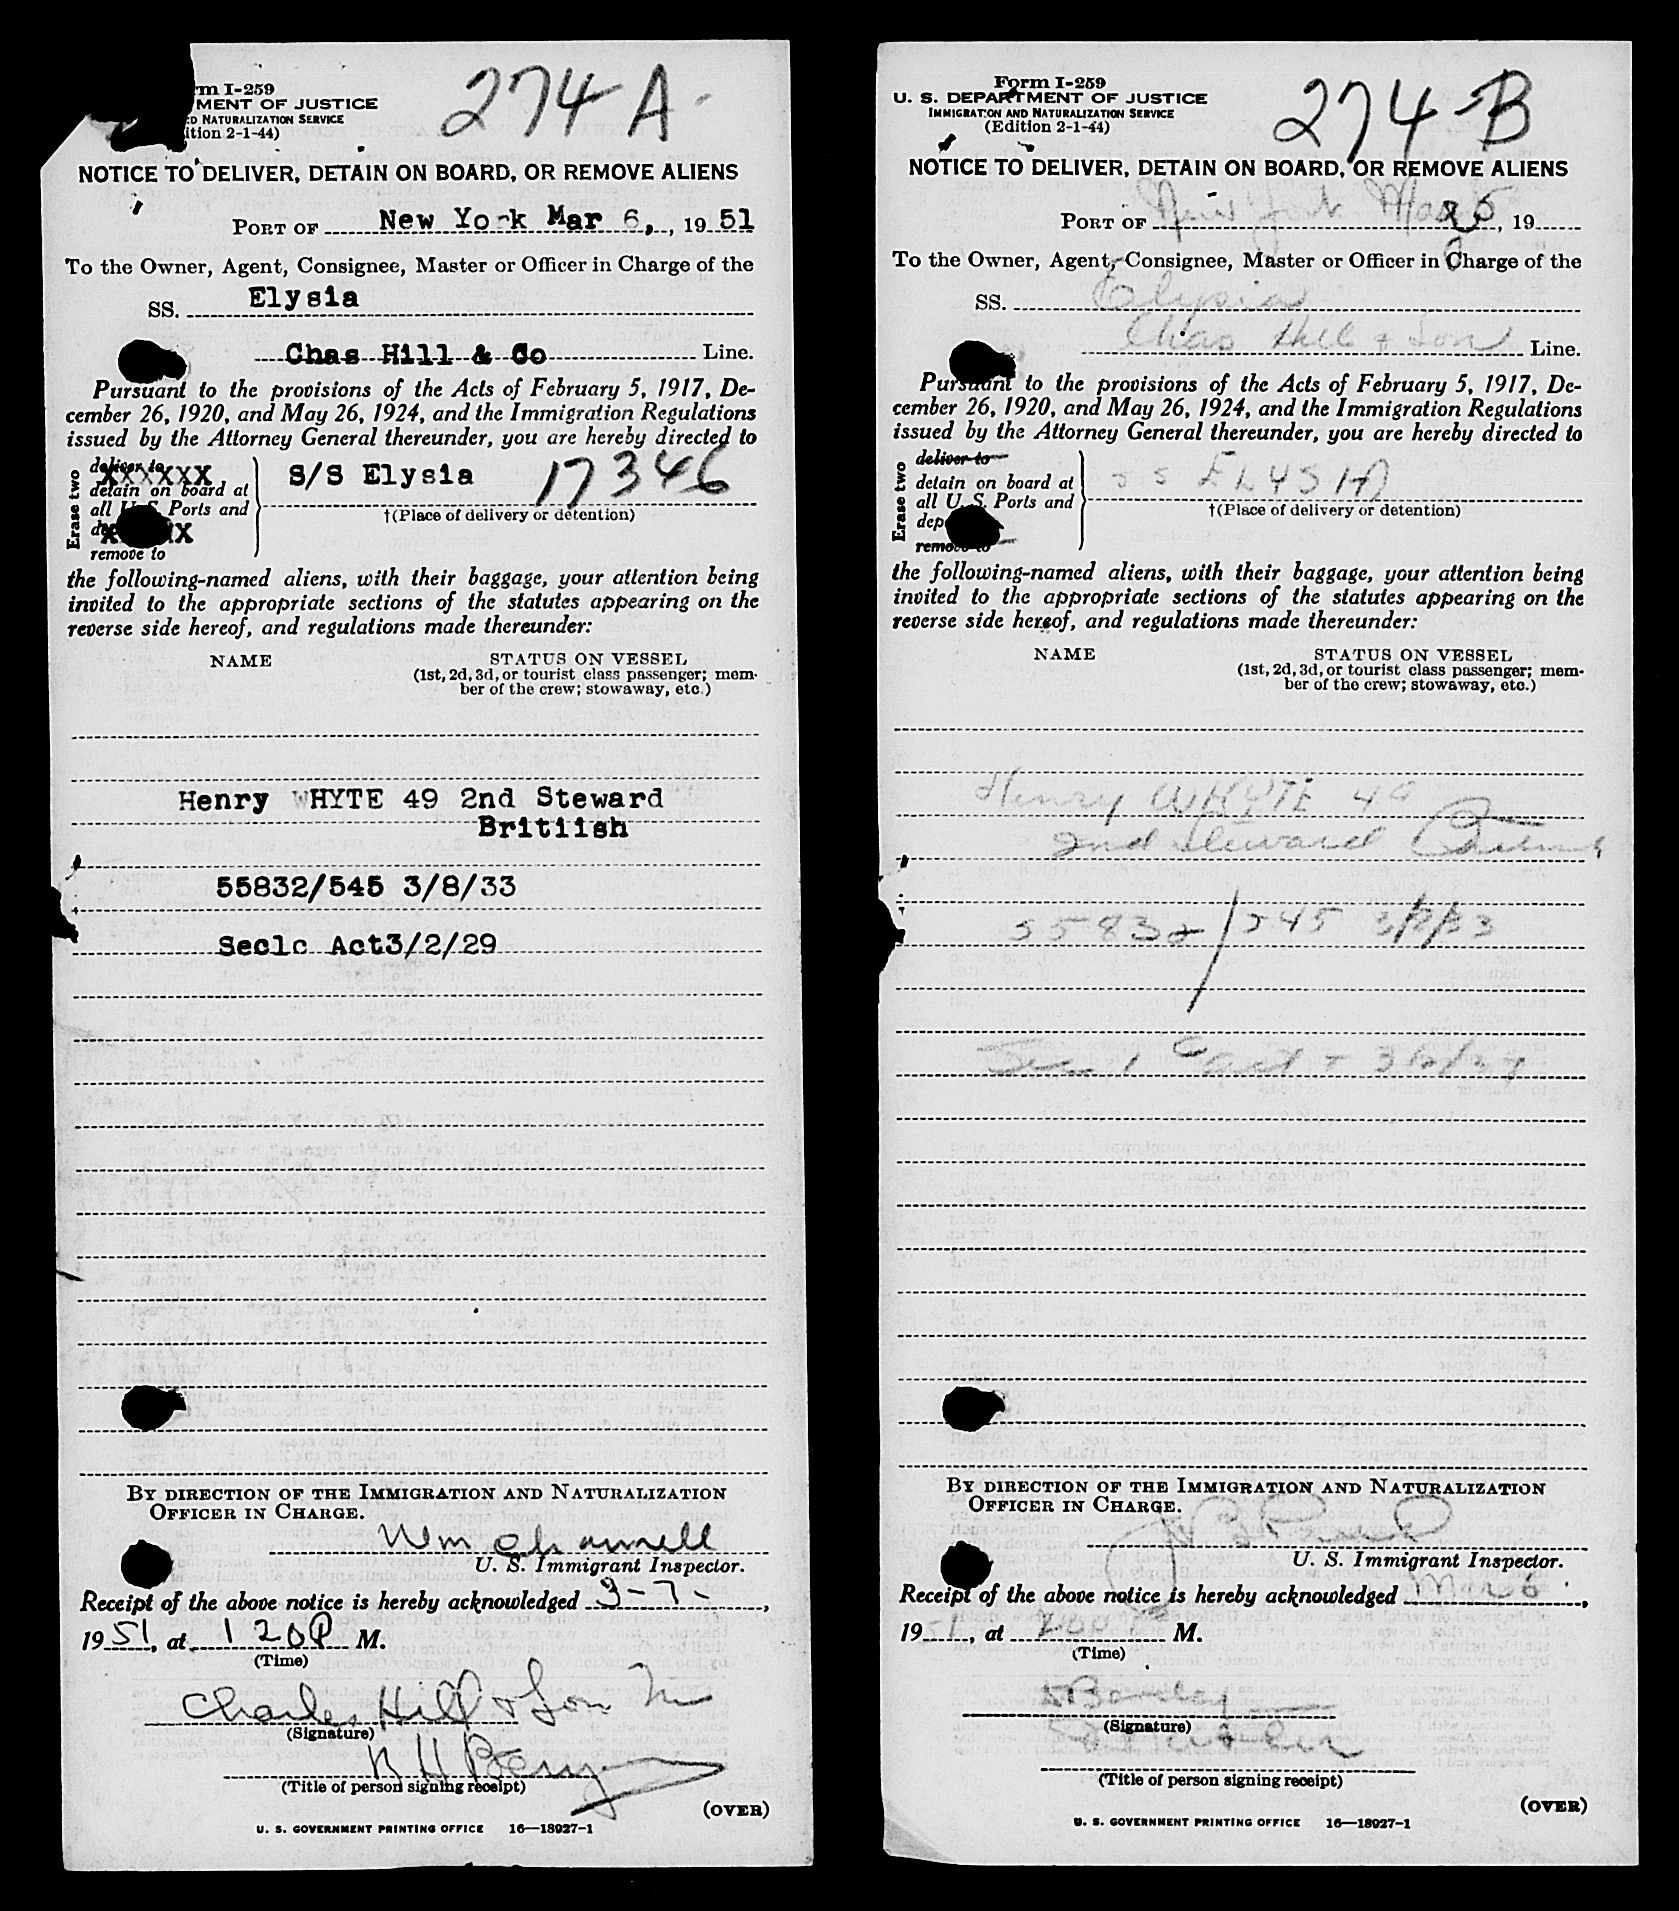 rm I-259
MENT OF JUSTICE
D NATURALIZATION SERVICE
ition 2-1-44)
274 A-
NOTICE TO DELIVER, DETAIN ON BOARD, OR REMOVE ALIENS
PORT OF New Yo k Mar 6, , 19 51
To the Owner, Agent, Consignee, Master or Officer in Charge of the
SS. Elysia
Chas Hill & Co Line.
Pursuant to the provisions of the Acts of February 5, 1917, De-
cember 26, 1920, and May 26, 1924, and the Immigration Regulations
issued by the Attorney General thereunder, you are hereby directed to
Erase two
deliver to
detain on board at
all U. S. Ports and
remove to
S/S Elysia 17346
†(Place of delivery or detention)
the following-named aliens, with their baggage, your attention being
invited to the appropriate sections of the statutes appearing on the
reverse side hereof, and regulations made thereunder:
NAME STATUS ON VESSEL
(1st, 2d, 3d, or tourist class passenger; mem-
ber of the crew; stowaway, etc.)
Henry WHYTE 49 2nd Steward
Britiish
55832/545 3/8/33
Sec1c Act3/2/29
BY DIRECTION OF THE IMMIGRATION AND NATURALIZATION
OFFICER IN CHARGE.
Wm
U. S. Immigrant Inspector.
Receipt of the above notice is hereby acknowledged 3-7-,
19 51, at 1 20 P M.
(Time)
Charles Hill & Son
(Signature)
(Title of person signing receipt)
(OVER)
U. S. GOVERNMENT PRINTING OFFICE 16—18927-1
Form I-259
U. S. DEPARTMENT OF JUSTICE
IMMIGRATION AND NATURALIZATION SERVICE
(Edition 2-1-44)
274-B
NOTICE TO DELIVER, DETAIN ON BOARD, OR REMOVE ALIENS
PORT OF New York Mar 6, 19
To the Owner, Agent, Consignee, Master or Officer in Charge of the
SS. Elysia
Chas Hill & Son Line.
Pursuant to the provisions of the Acts of February 5, 1917, De-
cember 26, 1920, and May 26, 1924, and the Immigration Regulations
issued by the Attorney General thereunder, you are hereby directed to
Erase two
deliver to
detain on board at
all U. S. Ports and
dep
remove to
SS ELYSIA
†(Place of delivery or detention)
the following-named aliens, with their baggage, your attention being
invited to the appropriate sections of the statutes appearing on the
reverse side hereof, and regulations made thereunder:
NAME STATUS ON VESSEL
(1st, 2d, 3d, or tourist class passenger; mem-
ber of the crew; stowaway, etc.)
Henry WHYTE 49
2nd Steward British
55832/545 3/8/33
Sec 1 c act - 3/2/29
BY DIRECTION OF THE IMMIGRATION AND NATURALIZATION
OFFICER IN CHARGE.
U. S. Immigrant Inspector.
Receipt of the above notice is hereby acknowledged Mar 6,
19 51, at 200 P M.
(Time)
(Signature)
(Title of person signing receipt)
(OVER)
U. S. GOVERNMENT PRINTING OFFICE 16—18927-1